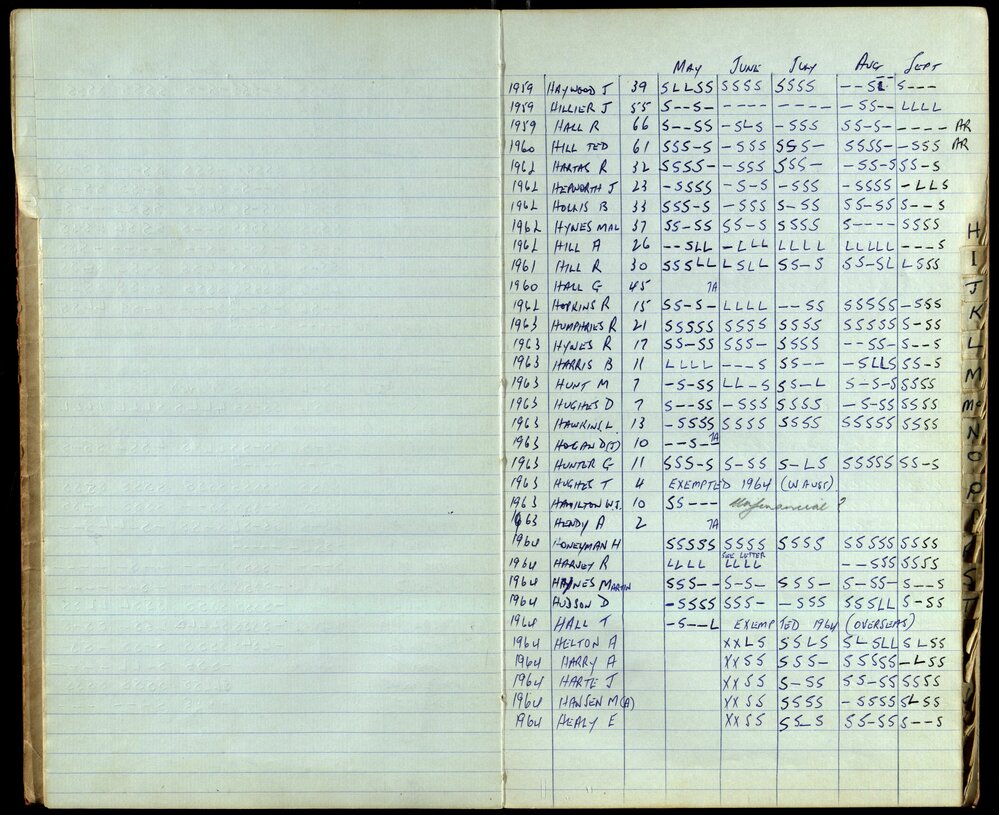 MAY JUNE JULY AUG SEPT
1959 HAYWOOD J 39 SLLSS SSSS SSSS --SL- S---
1959 HILLIER J 55 S--S- ---- ----- -SS-- LLLL
1959 HALL R 66 S--SS -SLS -SSS SS-S- ---- AR
1960 HILL TED 61 SSS-S -SSS SSS- SSSS- -SSS AR
1962 HARTAS R 32 SSSS- -SSS SSS- -SS-S SS-S
1962 HEPWORTH J 23 -SSSS -S-S -SSS -SSSS -LLS
1962 HOLLIS B 33 SSS-S -SSS S-SS SS-SS S--S
1962 HYNES MAL 37 SS-SS SS-S SSSS S---- SSSS
1962 HILL A 26 --SLL -LLL LLLL LLLLL ---S
1961 HILL R 30 SSSLL LSLL SS-S SS-SL LSSS
1960 HALL G 45 TA
1962 HOPKINS R 15 SS-S- LLLL --SS SSSSS -SSS
1963 HUMPHRIES R 21 SSSSS SSSS SSSS SSSSS S-SS
1963 HYNES R 17 SS-SS SSS- SSSS --SS- S--S
1963 HARRIS B 11 LLLL ---S SS-- -SLLS SS-S
1963 HUNT M 7 -S-SS LL-S SS-L S-S-S SSSS
1963 HUGHES D 7 S--SS -SSS SSSS -S-SS SSSS
1963 HAWKINS L 13 -SSSS SSSS SSSS SSSSS SSSS
1963 HOGAN D(J) 10 --S- TA
1963 HUNTER G 11 SSS-S S-SS S-LS SSSSS SS-S
1963 HUGHES T 4 EXEMPTED 1964 (W AUST)
1963 HAMILTON W.J. 10 SS--- Unfinancial ?
1963 HENDY A 2 TA
1964 HONEYMAN H SSSSS SSSS SSSS SSSSS SSSS
SEE LETTER
1964 HARVEY R LLLL LLLL --SSS SSSS
1964 HAYNES MARTIN SSS-- S-S- SSS- S-SS- S--S
1964 HUDSON D -SSSS SSS- -SSS SSSLL S-SS
1964 HALL T -S--L EXEMPTED 1964 (OVERSEAS)
1964 HELTON A XXLS SSLS SLSLL SLSS
1964 HARRY A XXSS SSS- SSSSS -LSS
1964 HARTE J XXSS S-SS SS-SS SSSS
1964 HANSEN M(A) XXSS SSSS -SSSS SLSS
1964 HEALY E XXSS SSLS SS-SS S--S
H
I
J
K
L
M
Mc
N
O
P
R
S
T